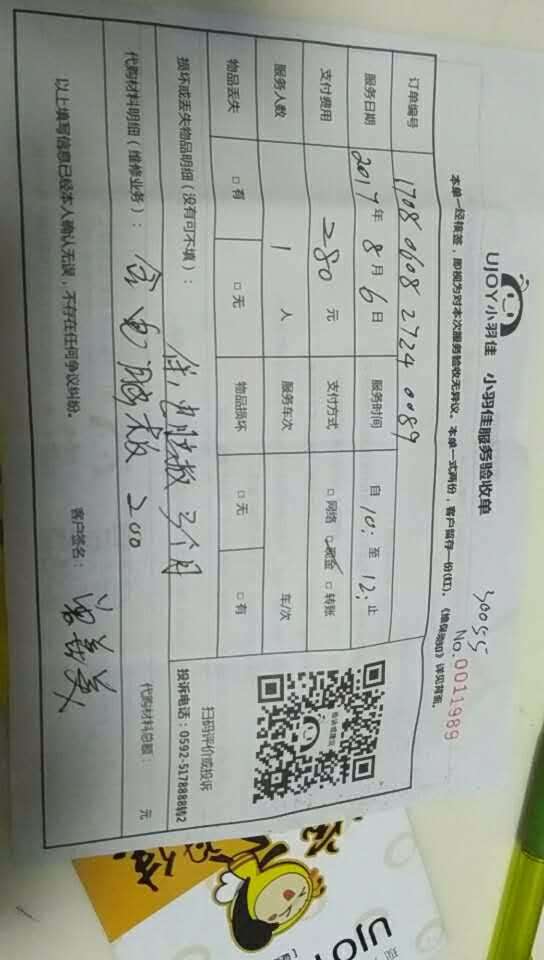 UJOY小羽佳 小羽佳服务验收单
30055
No.0011989
本单一经核签，即视为对本次服务验收无异议。本单一式两份，客户留存一份(红)。《维保须知》详见背面。
订单编号 1708 0608 2724 0089
服务日期 2017年8月6日 服务时间 自10:至12:止
支付费用 280元 支付方式 □网络 □现金 □转账
服务人数 1人 服务车次 车/次
物品丢失 □有 □无 物品损坏 □无 □有
损坏或丢失物品明细（没有可不填）：
3个月
代购材料明细（维修业务）：
200
代购材料总额： 元
以上填写信息已经本人确认无误，不存在任何争议纠纷。 客户签名：
投诉或建议
扫码评价或投诉
投诉电话：0592-5178888转2
UJO